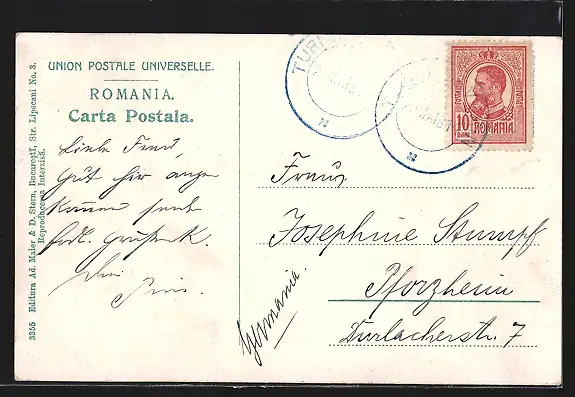 UNION POSTALE UNIVERSELLE.
ROMANIA.
Carta Postala.
3355 Editura Ad. Maier & D. Stern, Bucureşti, Str. Lipscani No. 3.
Reproducerea Interzisă.
Gut hier ange
kommen
TURN
10
BANI
ROMANIA
Frau
Josephine Stumpf
Pforzheim
Durlacherstr. 7
Germania